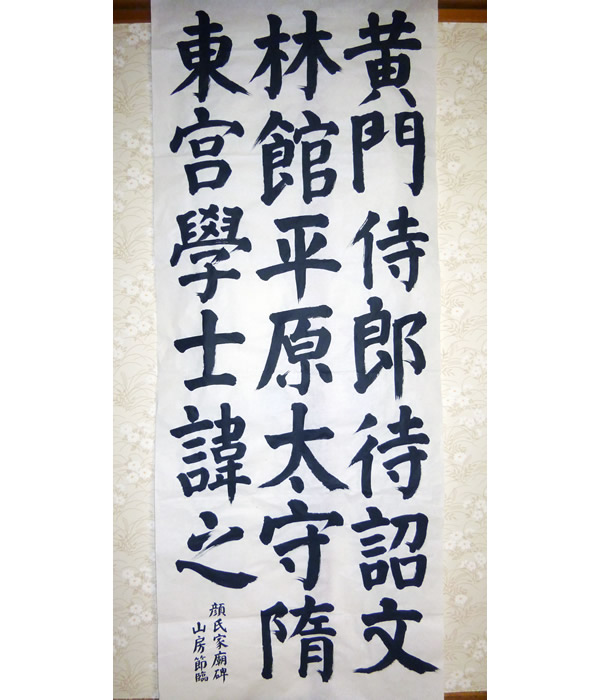 黄門侍郎待詔文
林館平原太守隋
東宮學士諱之
顔氏家廟碑
山房節臨